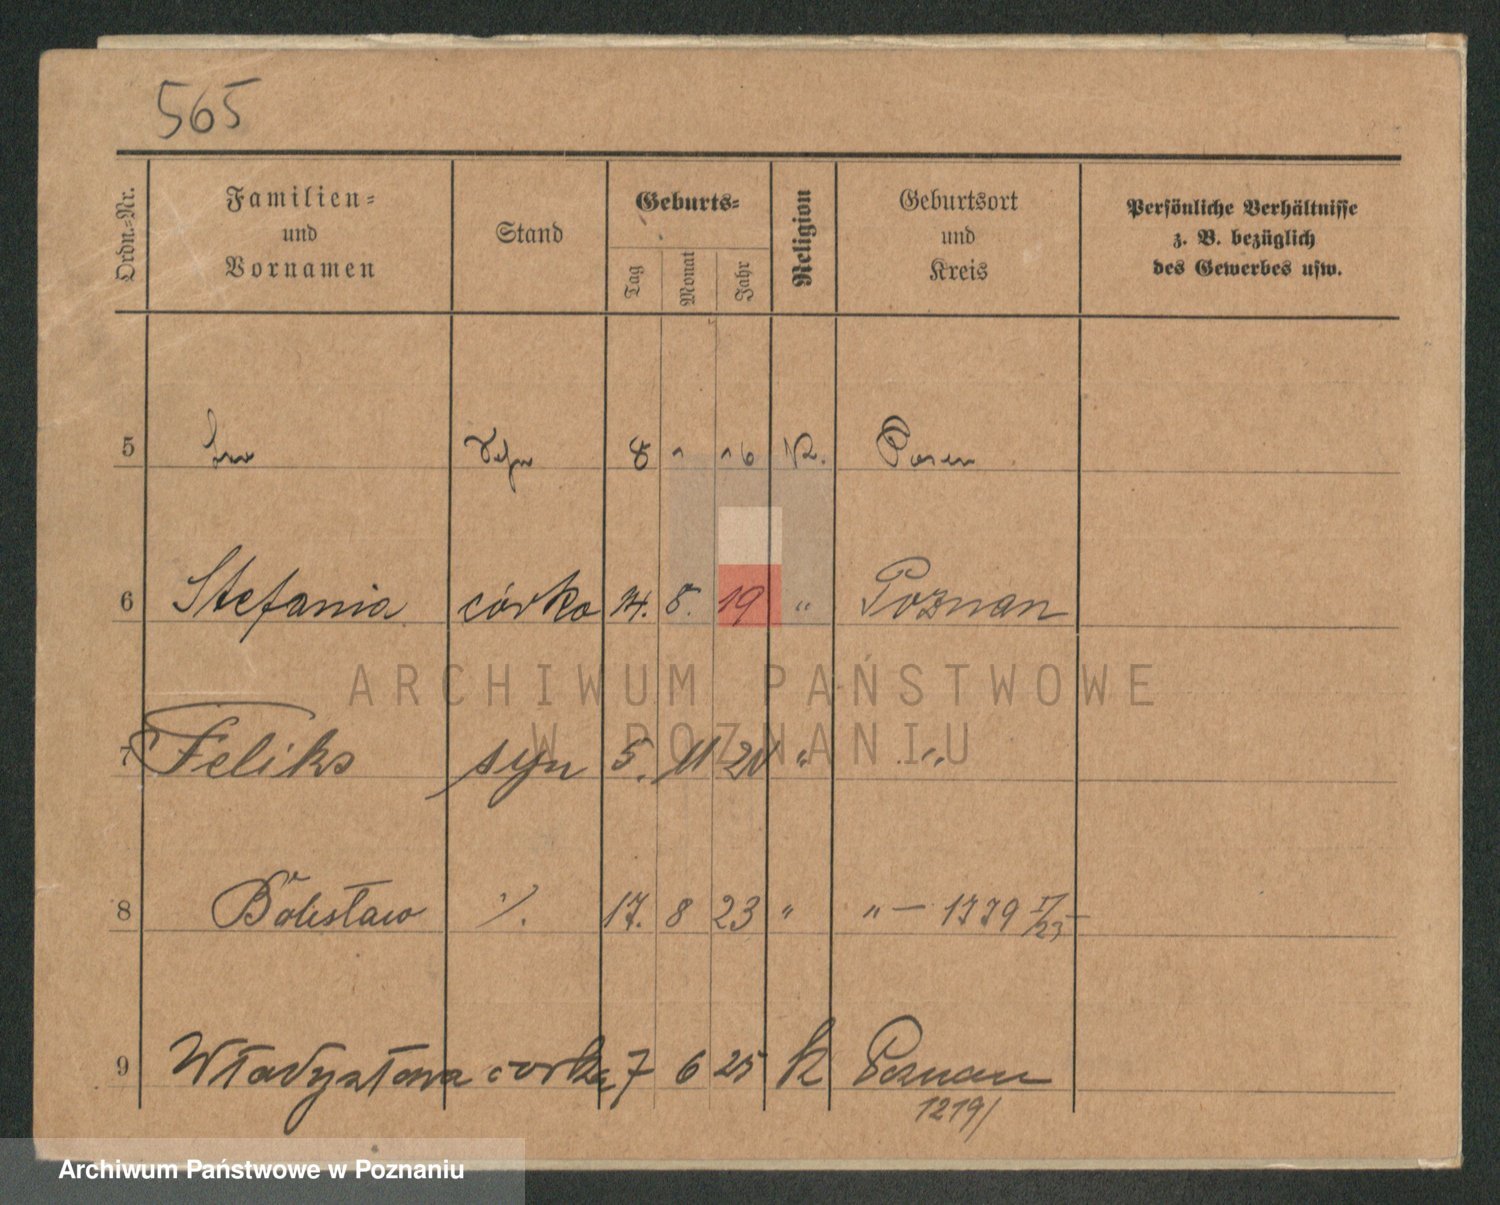 565
Ordn.=Nr.
Familien=
und
Vornamen
Stand
Geburts=
Tag
Monat
Jahr
Religion
Geburtsort
und
Kreis
Persönliche Verhältnisse
z. B. bezüglich
des Gewerbes usw.
5 8 16 K. Posen
6 Stefania córka 14. 8. 19 " Poznan
ARCHIWUM PAŃSTWOWE
W POZNANIU
7 Feliks syn 5. 11 "  "
8 Bolesław 17. 8 23 " " —
9 Władysława corka 7 6 25 k Poznan
1219/
Archiwum Państwowe w Poznaniu